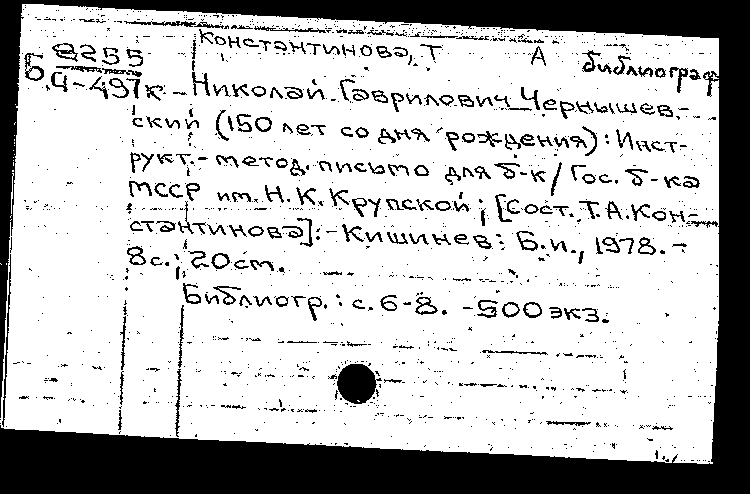 Константинова, Т А библиограф
8255
Б.Ч-497к - Николай Гаврилович Чернышев-
ский (150 лет со дня рождения): Инст-
рукт.- метод. письмо для б-к/ Гос. б-ка
МССР им. Н. К. Крупской; [Сост. Т.А. Кон-
стантинова]: - Кишинев: Б.и., 1978. -
8с.; 20см.
Библиогр.: с. 6-8. - 500 экз.